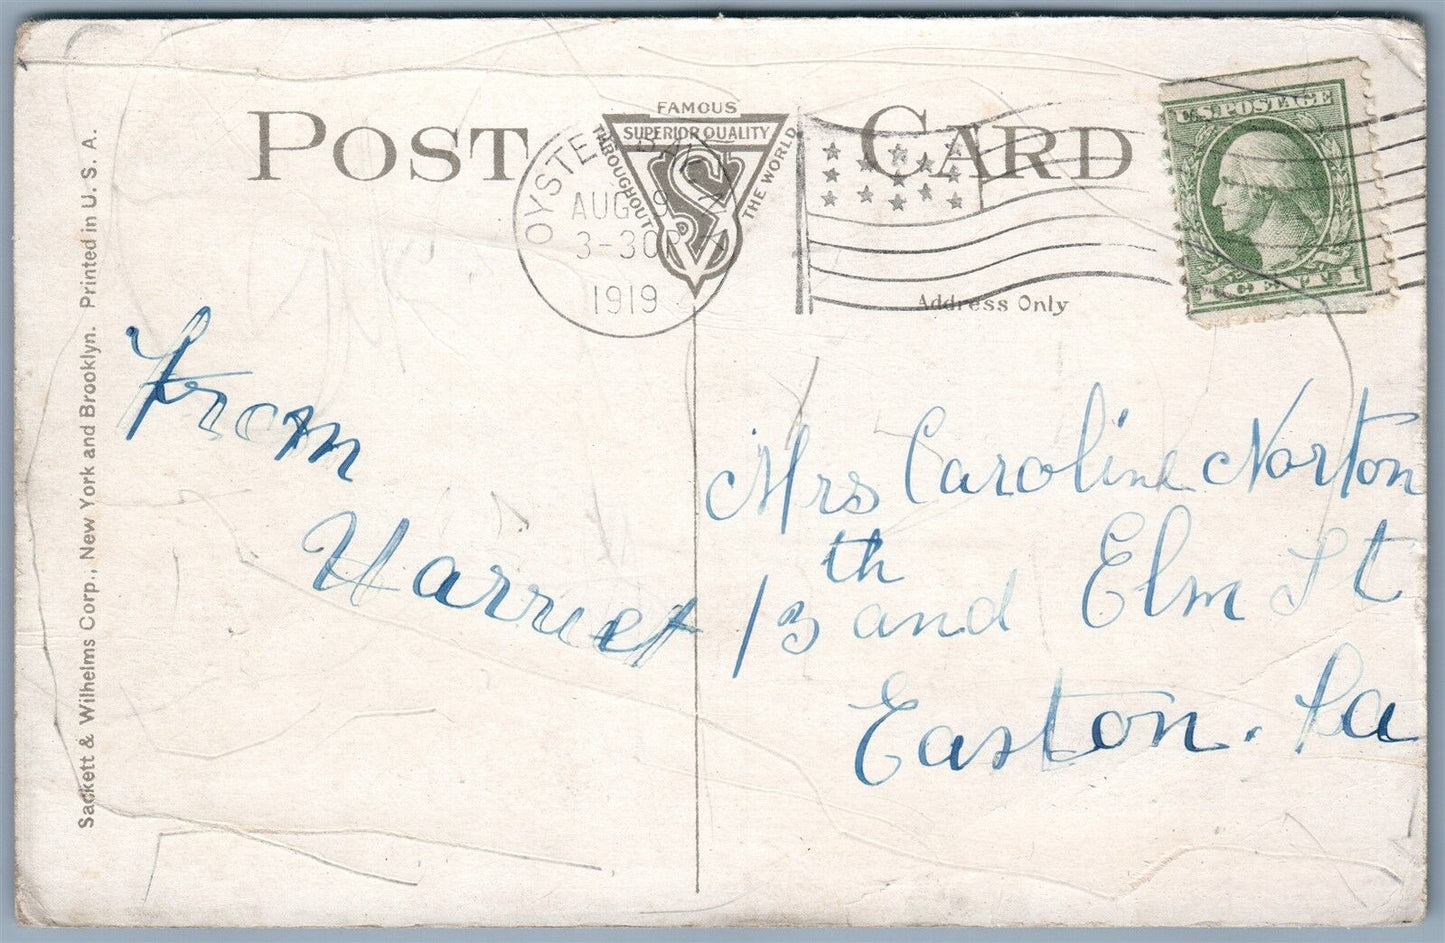 POST CARD
FAMOUS
SUPERIOR QUALITY
THROUGHOUT
THE WORLD
S
OYSTER BAY N.Y.
AUG 9
3-30P
1919
U.S. POSTAGE
1 CENT 1
Address Only
Sackett & Wilhelms Corp., New York and Brooklyn. Printed in U. S. A.
From
Harriet
Mrs Caroline Norton
13th and Elm St
Easton. Pa